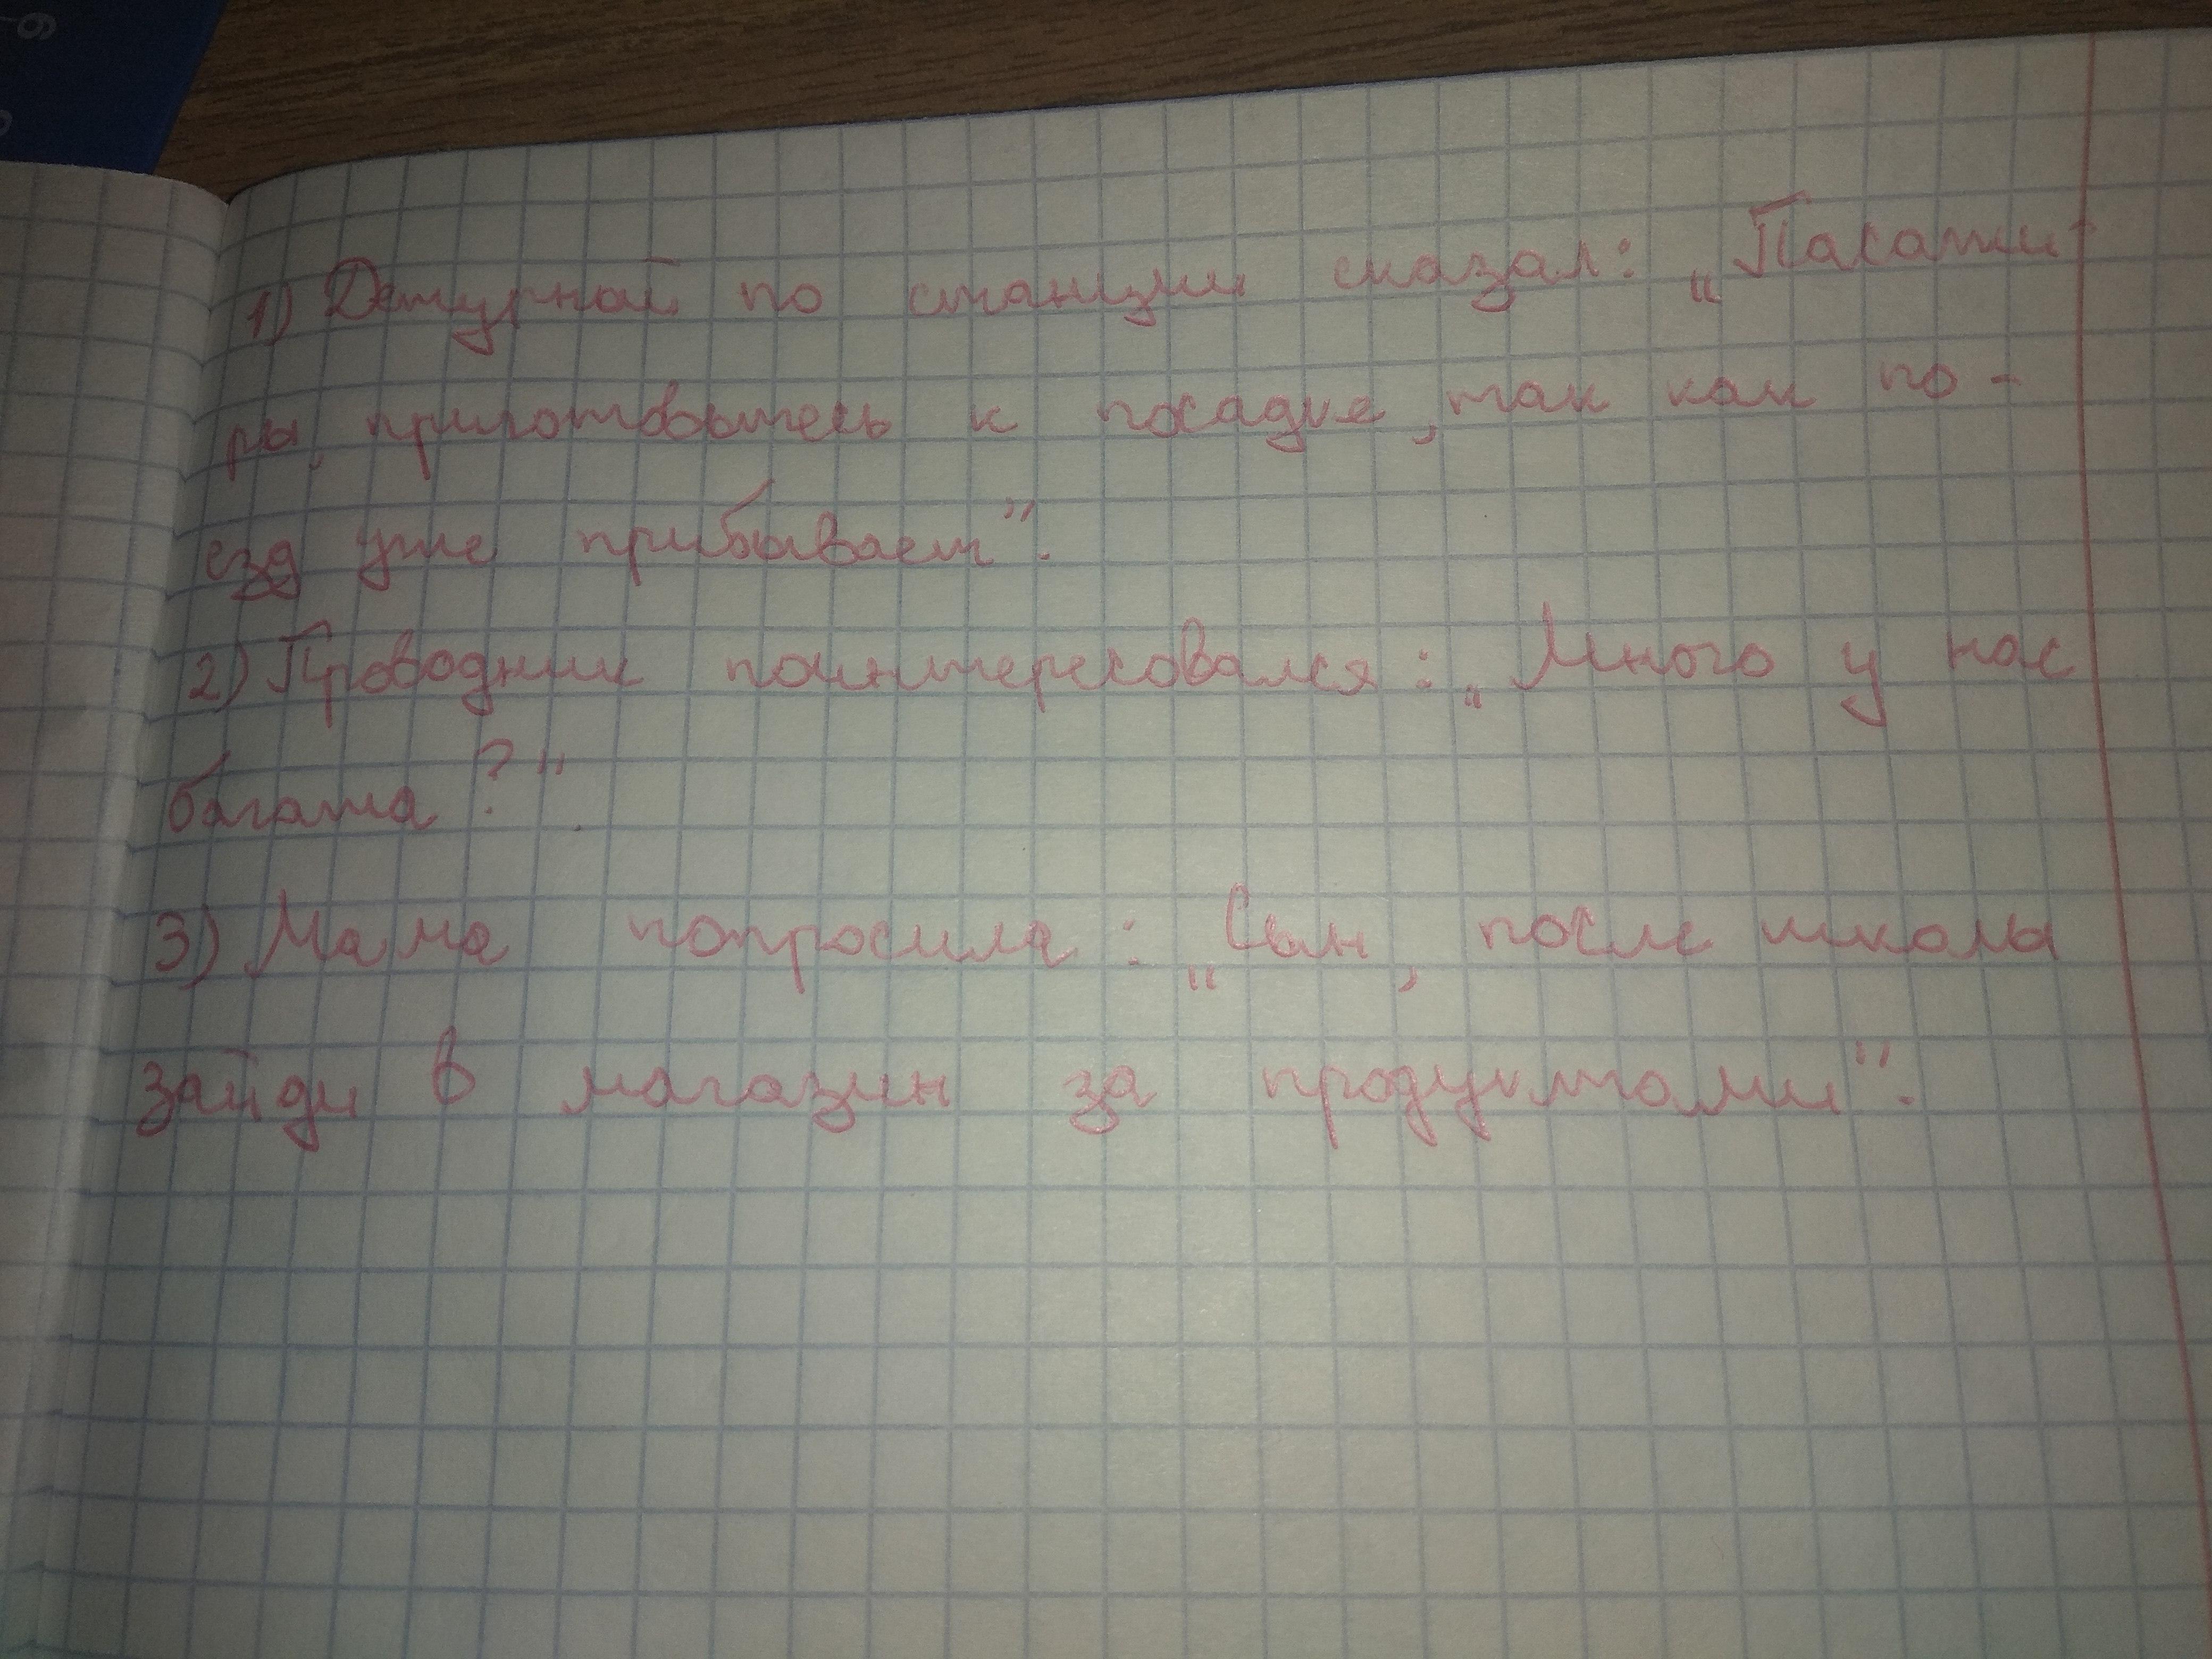 1) Дежурной по станции сказал: „Пасажи
ры, приготовьтесь к посадке, так как по-
езд уже прибывает”.
2) Проводник поинтересовался: „Много у нас
багажа?”.
3) Мама попросила: „Сын, после школы
зайди в магазин за продуктами”.